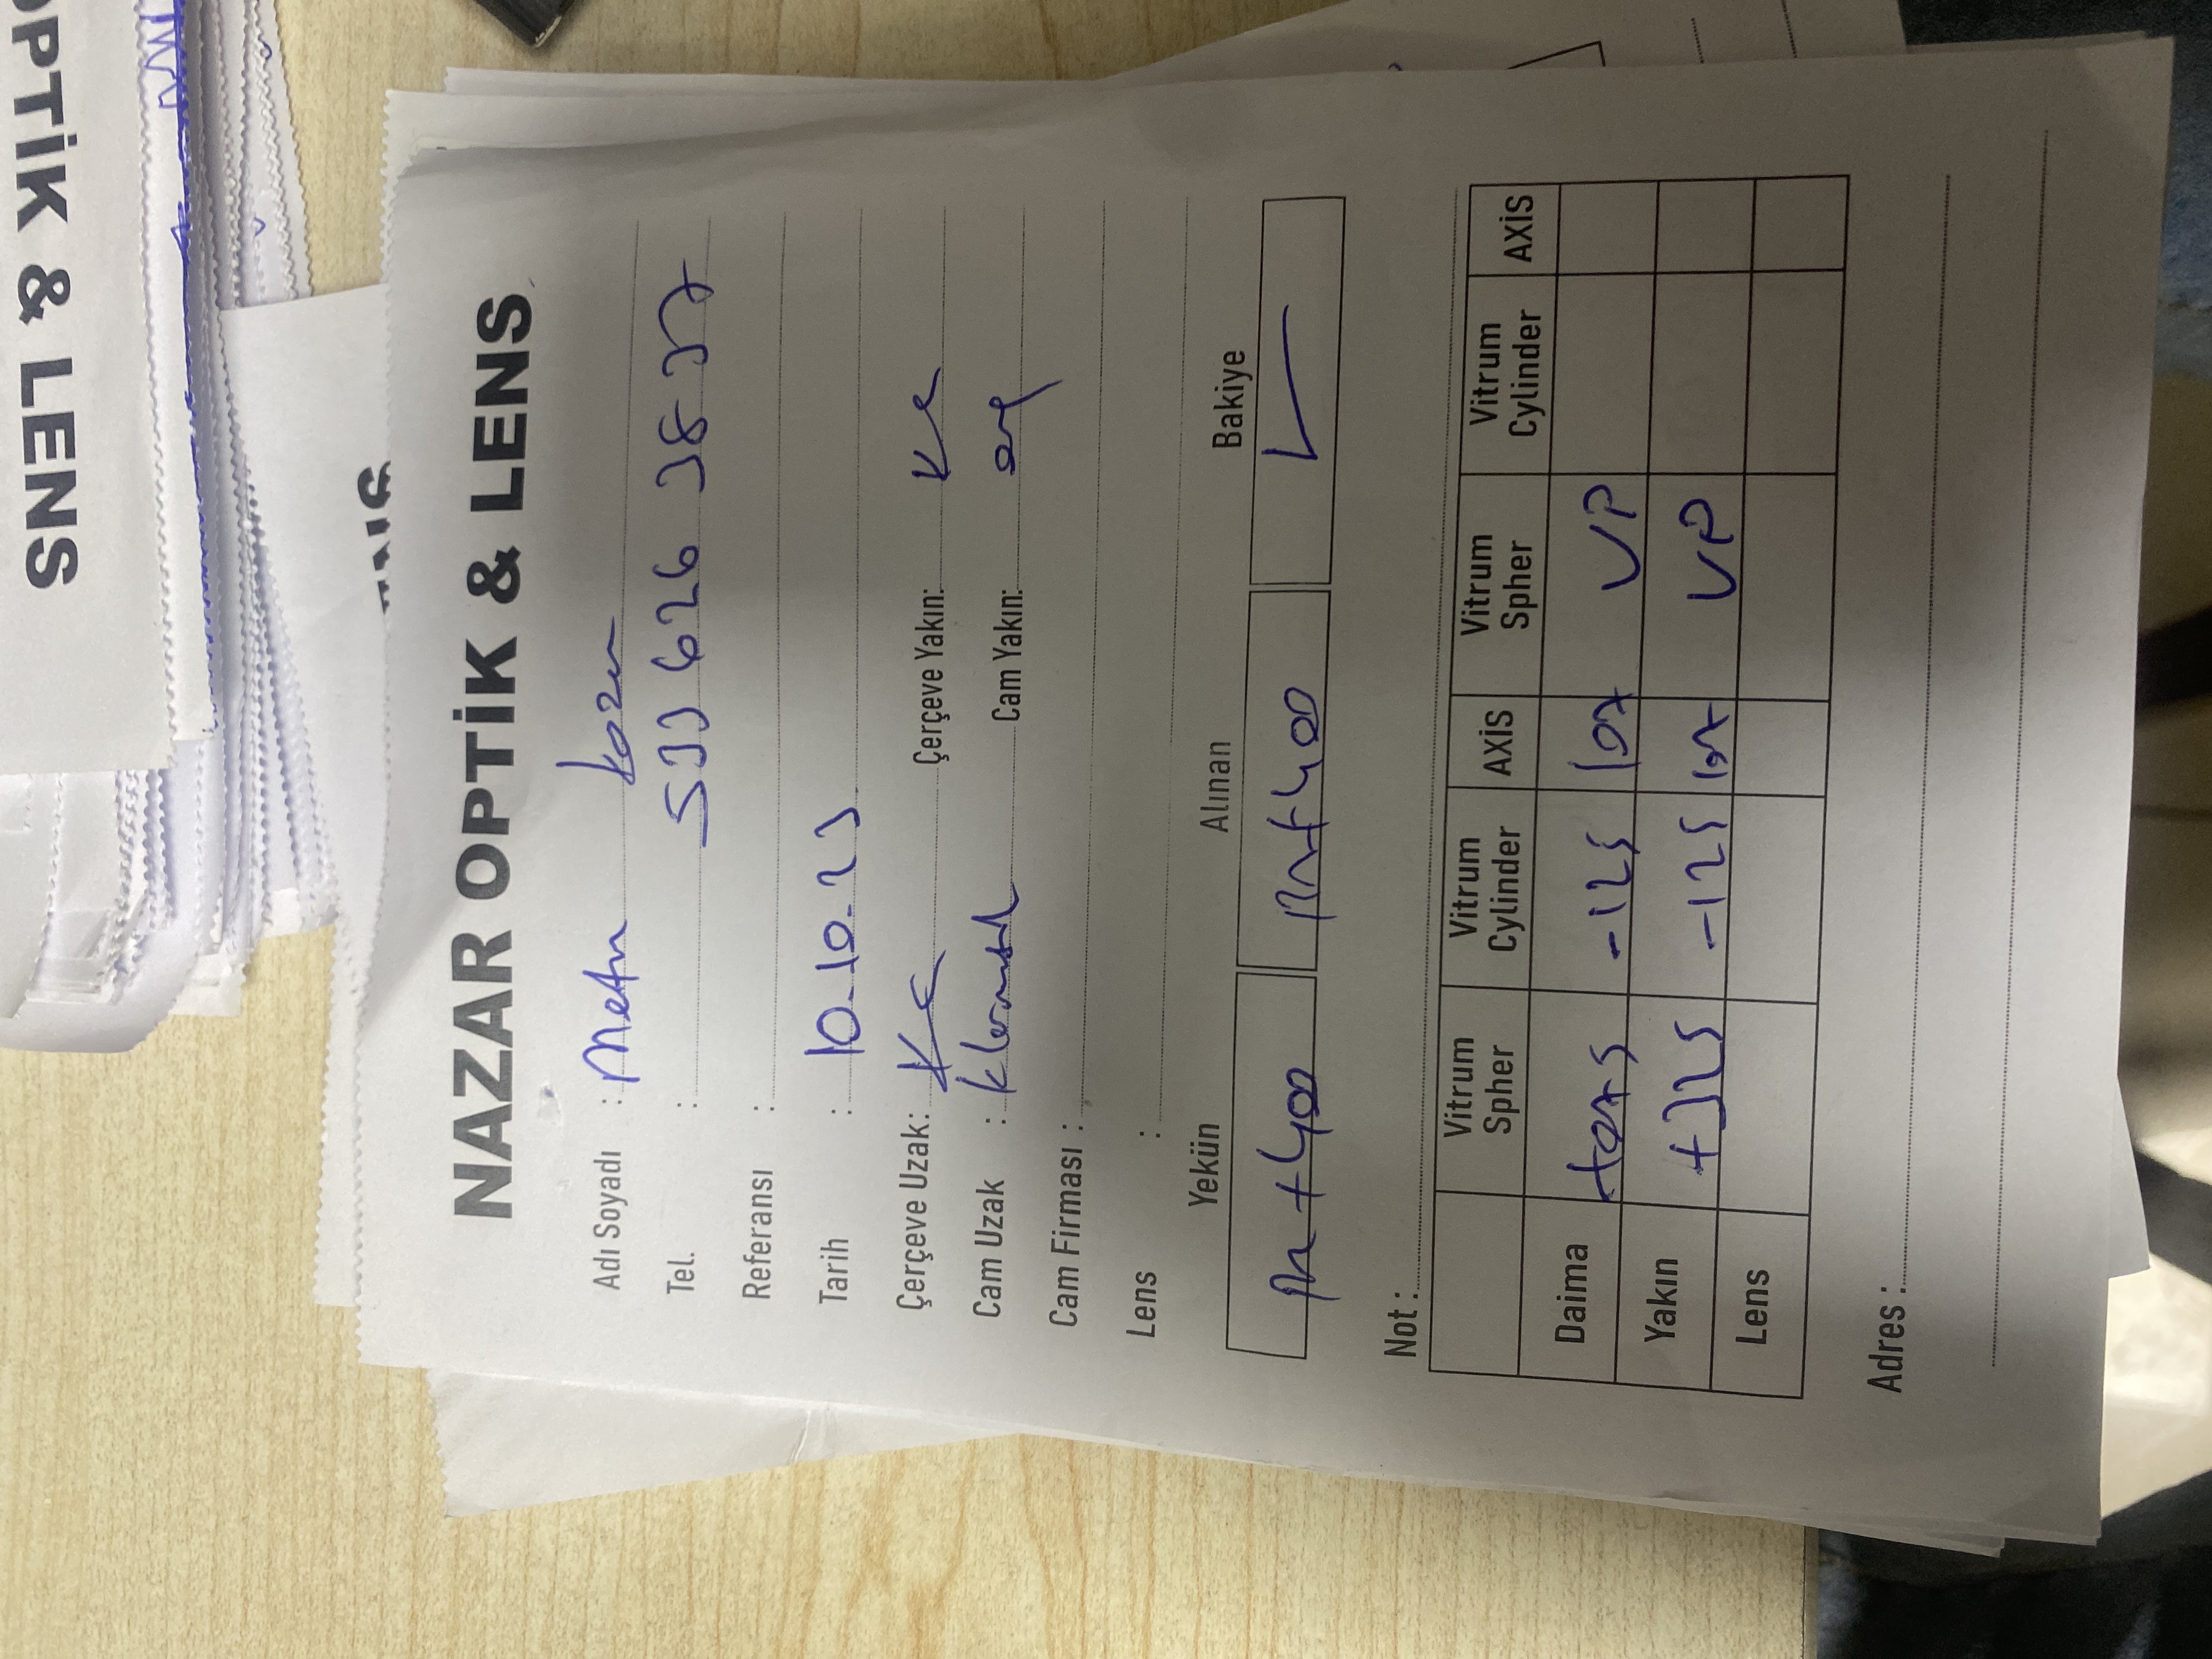 OPTİK & LENS
NAZAR OPTİK & LENS
Adı Soyadı : Metin
Tel. : 533 626 38 37
Referansı :
Tarih : 10.10.23.
Çerçeve Uzak: KÇ Çerçeve Yakın: KÇ
Cam Uzak : Cam Yakın:
Cam Firması :
Lens :
Yekün Alınan Bakiye
+400 +400
Not :
Vitrum Spher Vitrum Cylinder AXİS Vitrum Spher Vitrum Cylinder AXİS
Daima +075 -125 107 VP
Yakın +325 -125 107 VP
Lens
Adres :